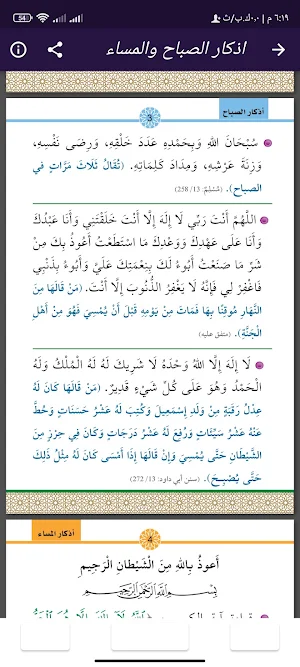 ٦:١٩ م | ٠,٠ك.ب/ث
54
اذكار الصباح والمساء
أذكار الصباح
3
سُبْحَانَ اللَّهِ وَبِحَمْدِهِ عَدَدَ خَلْقِهِ، وَرِضَى نَفْسِهِ،
وَزِنَةَ عَرْشِهِ، وَمِدَادَ كَلِمَاتِهِ. (تُقَالُ ثَلَاثَ مَرَّاتٍ في
الصباح). (مُسْلِمٌ: 13/ 258)
اللَّهُمَّ أَنْتَ رَبِّي لَا إِلَهَ إِلَّا أَنْتَ خَلَقْتَنِي وَأَنَا عَبْدُكَ
وَأَنَا عَلَى عَهْدِكَ وَوَعْدِكَ مَا اسْتَطَعْتُ أَعُوذُ بِكَ مِنْ
شَرِّ مَا صَنَعْتُ أَبُوءُ لَكَ بِنِعْمَتِكَ عَلَيَّ وَأَبُوءُ بِذَنْبِي
فَاغْفِرْ لِي فَإِنَّهُ لَا يَغْفِرُ الذُّنُوبَ إِلَّا أَنْتَ. (مَنْ قَالَهَا مِنَ
النَّهَارِ مُوقِنًا بِهَا فَمَاتَ مِنْ يَوْمِهِ قَبْلَ أَنْ يُمْسِيَ فَهُوَ مِنْ أَهْلِ
الْجَنَّةِ). (متفق عليه)
لَا إِلَهَ إِلَّا اللَّهُ وَحْدَهُ لَا شَرِيكَ لَهُ لَهُ الْمُلْكُ وَلَهُ
الْحَمْدُ وَهُوَ عَلَى كُلِّ شَيْءٍ قَدِيرٌ. (مَنْ قَالَهَا كَانَ لَهُ
عِدْلُ رَقَبَةٍ مِنْ وَلَدِ إِسْمَعِيلَ وَكُتِبَ لَهُ عَشْرُ حَسَنَاتٍ وَحُطَّ
عَنْهُ عَشْرُ سَيِّئَاتٍ وَرُفِعَ لَهُ عَشْرُ دَرَجَاتٍ وَكَانَ فِي حِرْزٍ مِنَ
الشَّيْطَانِ حَتَّى يُمْسِيَ وَإِنْ قَالَهَا إِذَا أَمْسَى كَانَ لَهُ مِثْلُ ذَلِكَ
حَتَّى يُصْبِحَ). (سنن أبي داود: 13/ 272)
أذكار المساء
4
أَعوذُ بِاللهِ مِنَ الشَّيْطَانِ الرَّجِيمِ
بِسْمِ اللَّهِ الرَّحْمَنِ الرَّحِيمِ